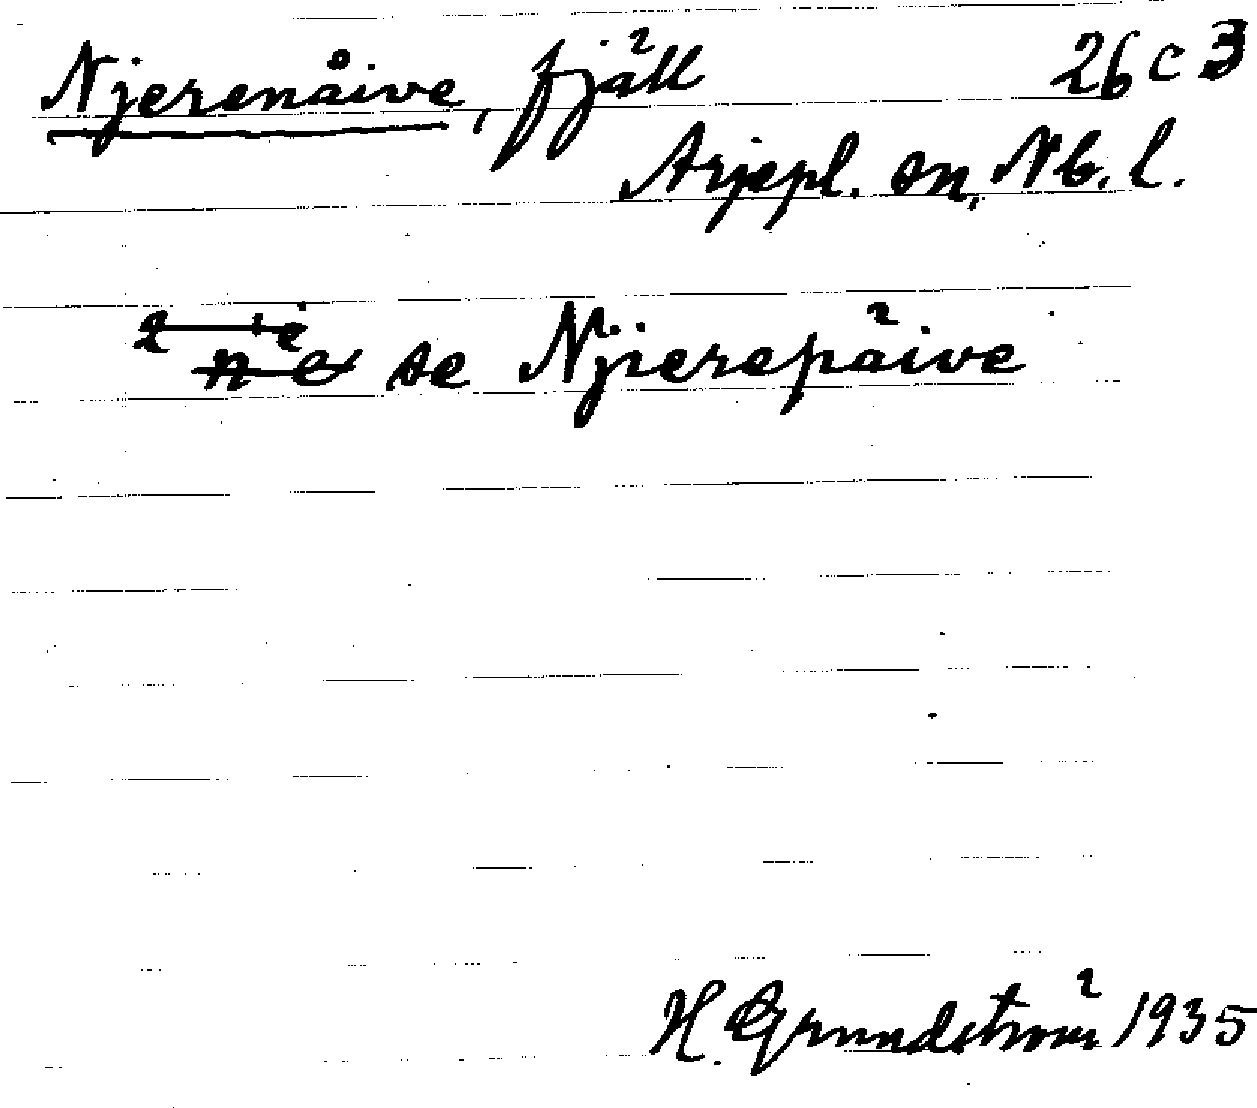 Njerenåive, fjäll 26 c 3
Arjepl. sn, Nb. l.
se Njierepäive
H. Grundström 1935